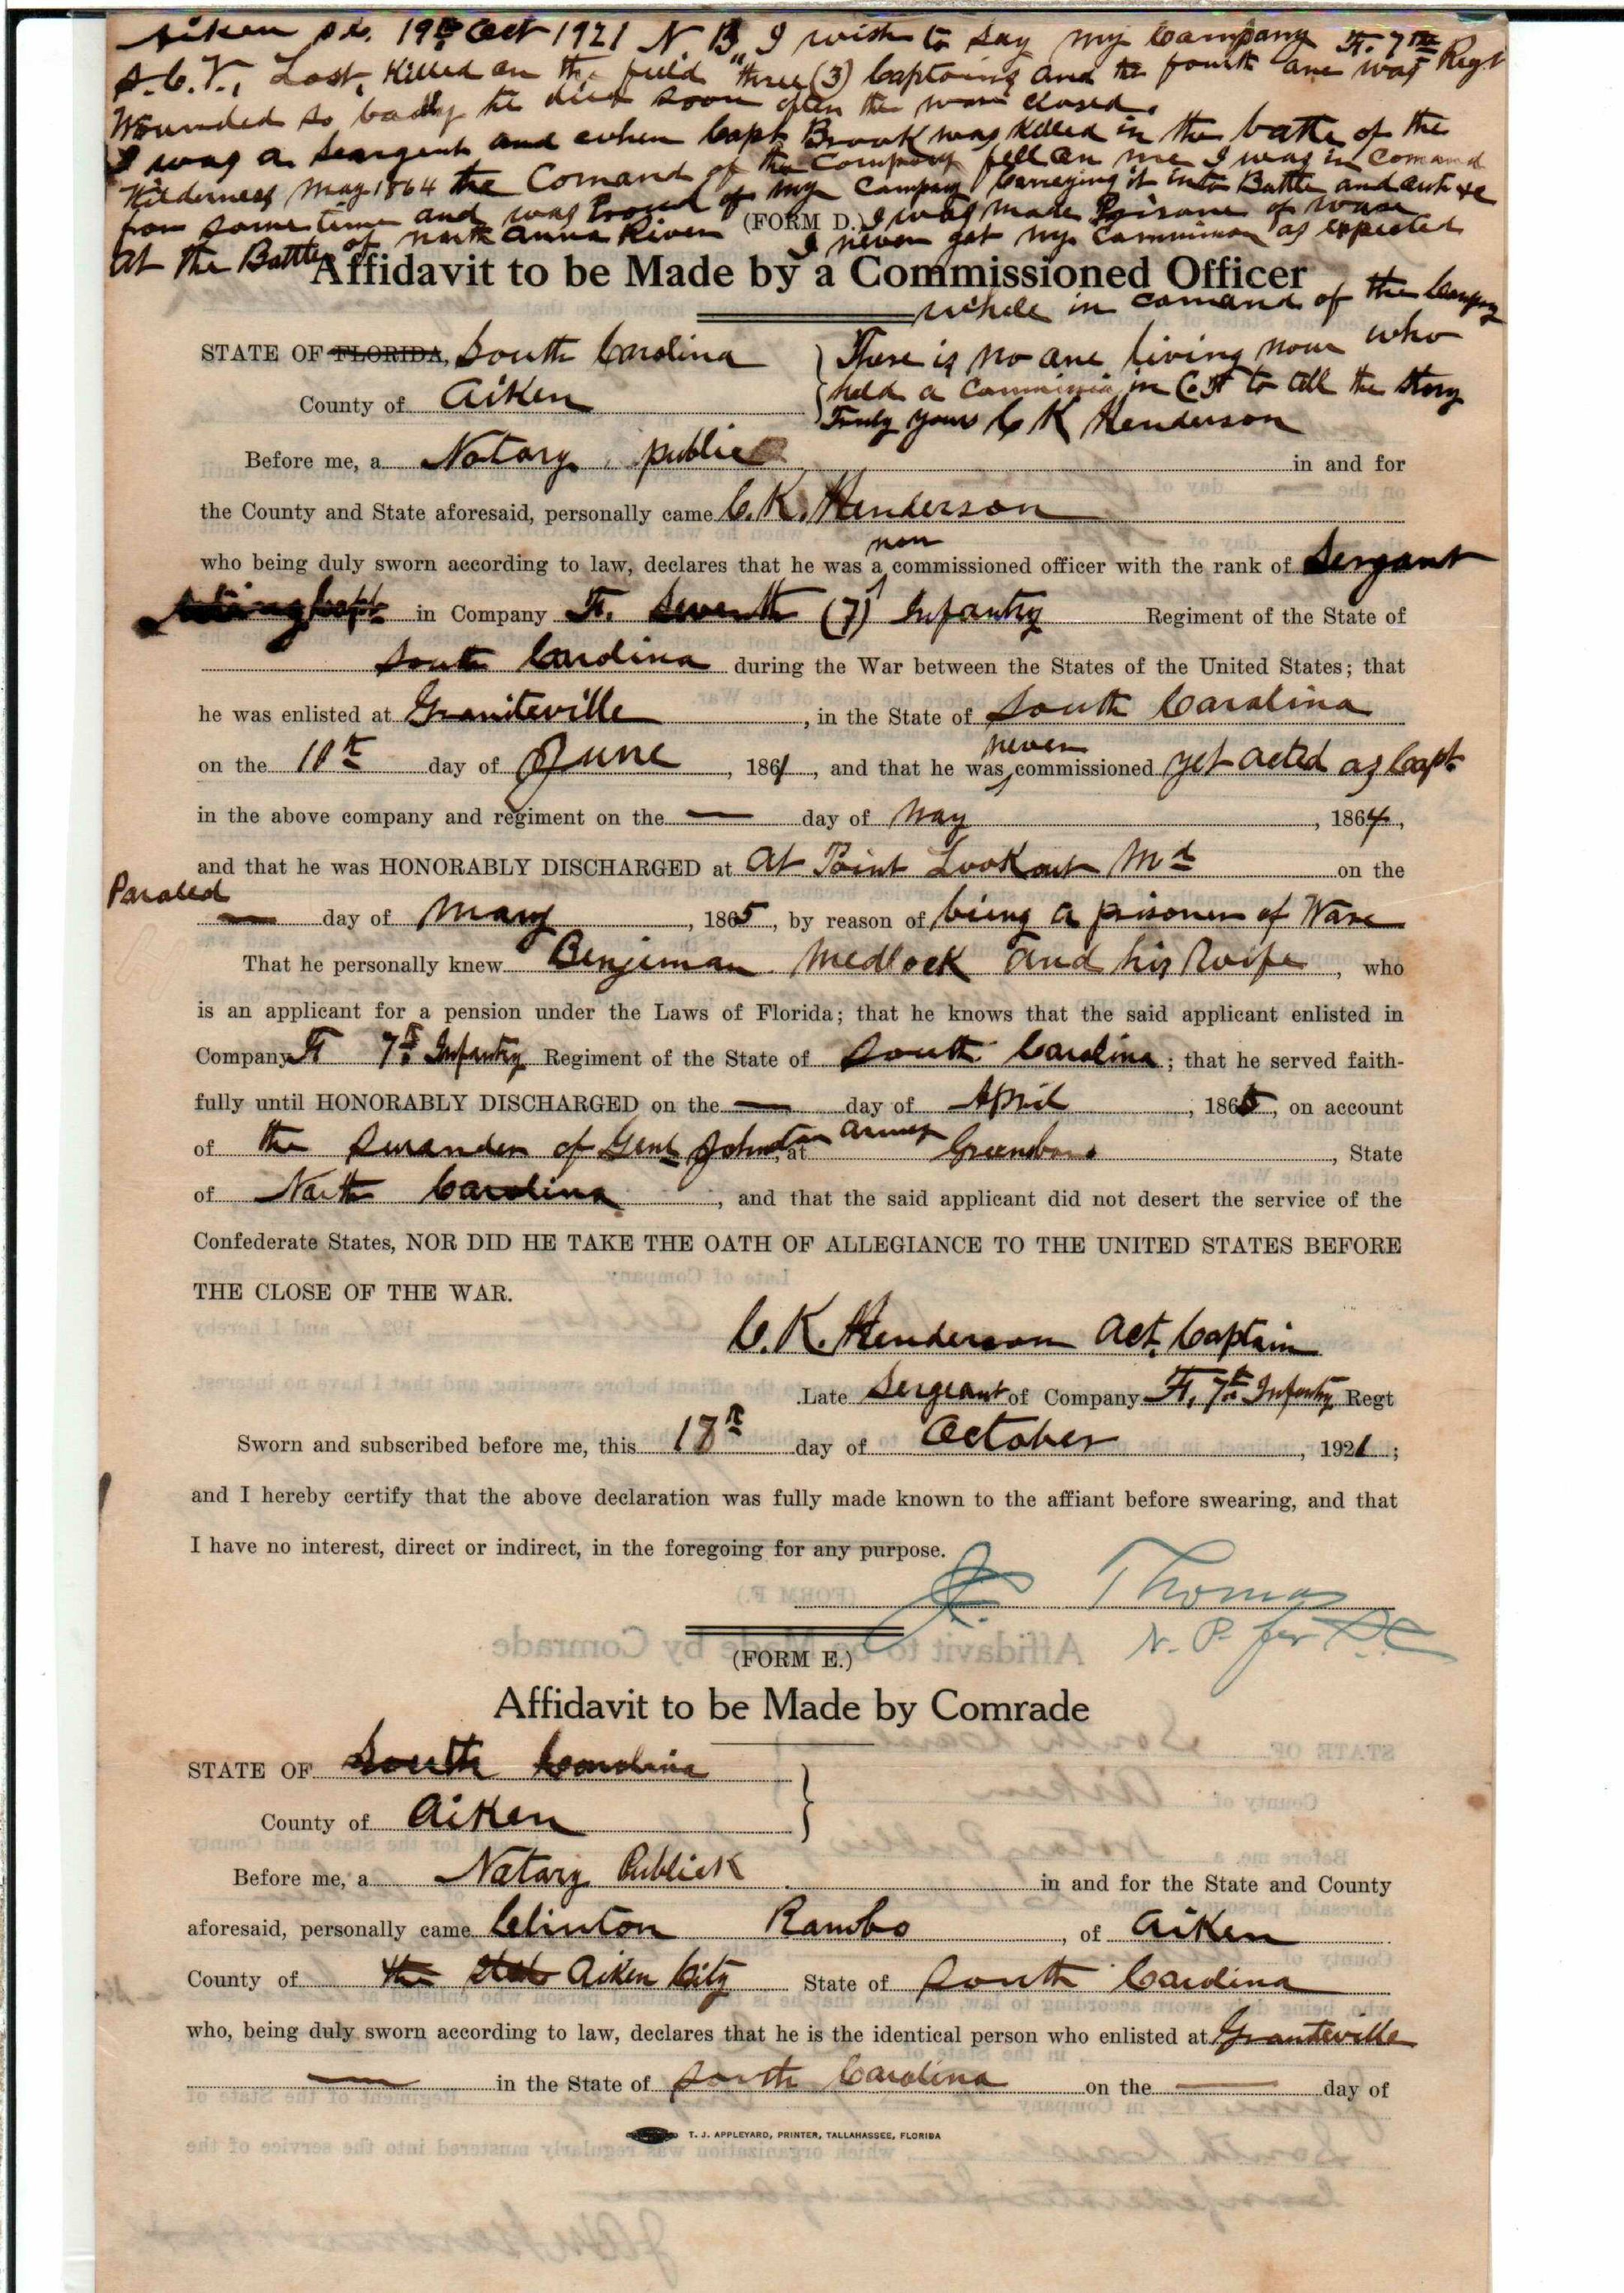 Aiken S.C. 19th Oct 1921 N. B. I wish to say my Company F. 7th Regt
S.C.V., Lost, Killed on the field "three (3) Captains and the fourth one was
Wounded so badly he died soon after the ware closed.
I was a Seargent and when Capt Brook was Killed in the battle of the
Wilderness May 1864 the Comand of the Company fell on me I was in Comand
from sometime and was Proud of my Company Carreying it into Battle and
(FORM D.) I was made Prisoner of ware
At the Battle of North Anna River I never got my Commission as expected
Affidavit to be Made by a Commissioned Officer
while in comand of the Company
STATE OF FLORIDA, South Carolina There is no one living now who
held a Commission in Co. F to tell the story
County of Aiken
Truly yours C K Henderson
Before me, a Notary public in and for
the County and State aforesaid, personally came C. K. Henderson
non
who being duly sworn according to law, declares that he was a commissioned officer with the rank of Sergant
Acting Capt in Company F. Seventh (7) Infantry Regiment of the State of
South Carolina during the War between the States of the United States; that
he was enlisted at Graniteville, in the State of South Carolina
never
on the 10th day of June, 1861, and that he was commissioned yet acted as Capt.
in the above company and regiment on the — day of May, 1864,
and that he was HONORABLY DISCHARGED at at Point Lookout Md on the
Paroled
— day of May, 1865, by reason of being a prisoner of Ware
That he personally knew Benjiman Medlock and his Wife, who
is an applicant for a pension under the Laws of Florida; that he knows that the said applicant enlisted in
Company F 7th Infantry Regiment of the State of South Carolina; that he served faith-
fully until HONORABLY DISCHARGED on the — day of April, 1865, on account
of the Surander of Genl Johnston army at Greensboro, State
of North Carolina, and that the said applicant did not desert the service of the
Confederate States, NOR DID HE TAKE THE OATH OF ALLEGIANCE TO THE UNITED STATES BEFORE
THE CLOSE OF THE WAR.
C. K. Henderson Act. Captain
Late Sergeant of Company F, 7th Infantry Regt
Sworn and subscribed before me, this 18th day of October, 1921;
and I hereby certify that the above declaration was fully made known to the affiant before swearing, and that
I have no interest, direct or indirect, in the foregoing for any purpose.
Thomas
N. P. for S.C.
(FORM E.)
Affidavit to be Made by Comrade
STATE OF South Carolina
County of Aiken
Before me, a Notary Publick in and for the State and County
aforesaid, personally came Clinton Rambo, of Aiken
County of the State Aiken City State of South Carolina
who, being duly sworn according to law, declares that he is the identical person who enlisted at Graniteville
— in the State of South Carolina on the — day of
T. J. APPLEYARD, PRINTER, TALLAHASSEE, FLORIDA